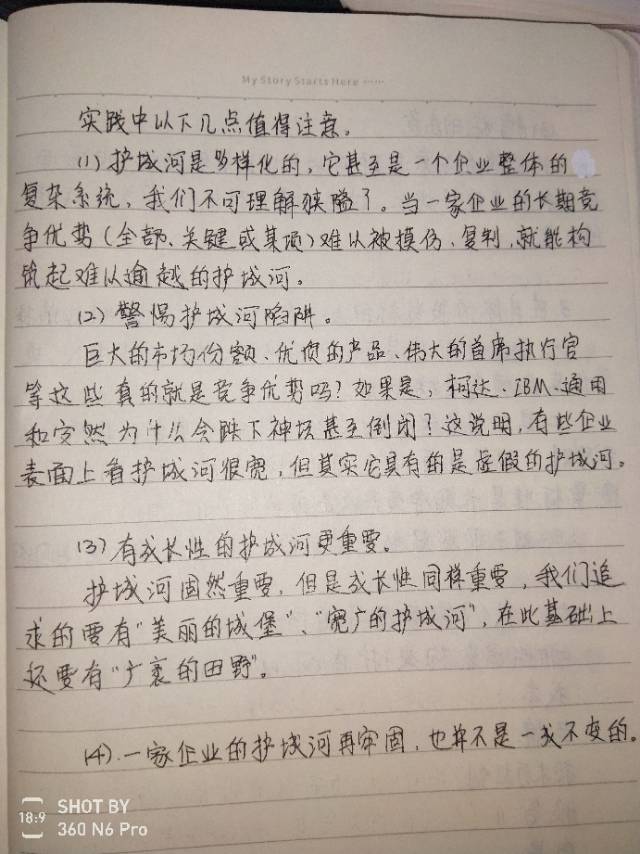 My Story Starts Here ······
实践中以下几点值得注意。
(1) 护城河是多样化的，它甚至是一个企业整体的
复杂系统，我们不可理解狭隘了。当一家企业的长期竞
争优势（全部、关键或某项）难以被摸仿、复制，就能构
筑起难以逾越的护城河。
(2) 警惕护城河陷阱。
巨大的市场份额、优质的产品、伟大的首席执行官
等这些真的就是竞争优势吗？如果是，柯达、IBM、通用
和安然为什么会跌下神坛甚至倒闭？这说明，有些企业
表面上看护城河很宽，但其实它具有的是虚假的护城河。
(3) 有成长性的护城河更重要。
护城河固然重要，但是成长性同样重要，我们追
求的要有“美丽的城堡”、“宽广的护城河”，在此基础上
还要有“广袤的田野”。
(4).一家企业的护城河再牢固，也并不是一成不变的。
18:9
SHOT BY
360 N6 Pro